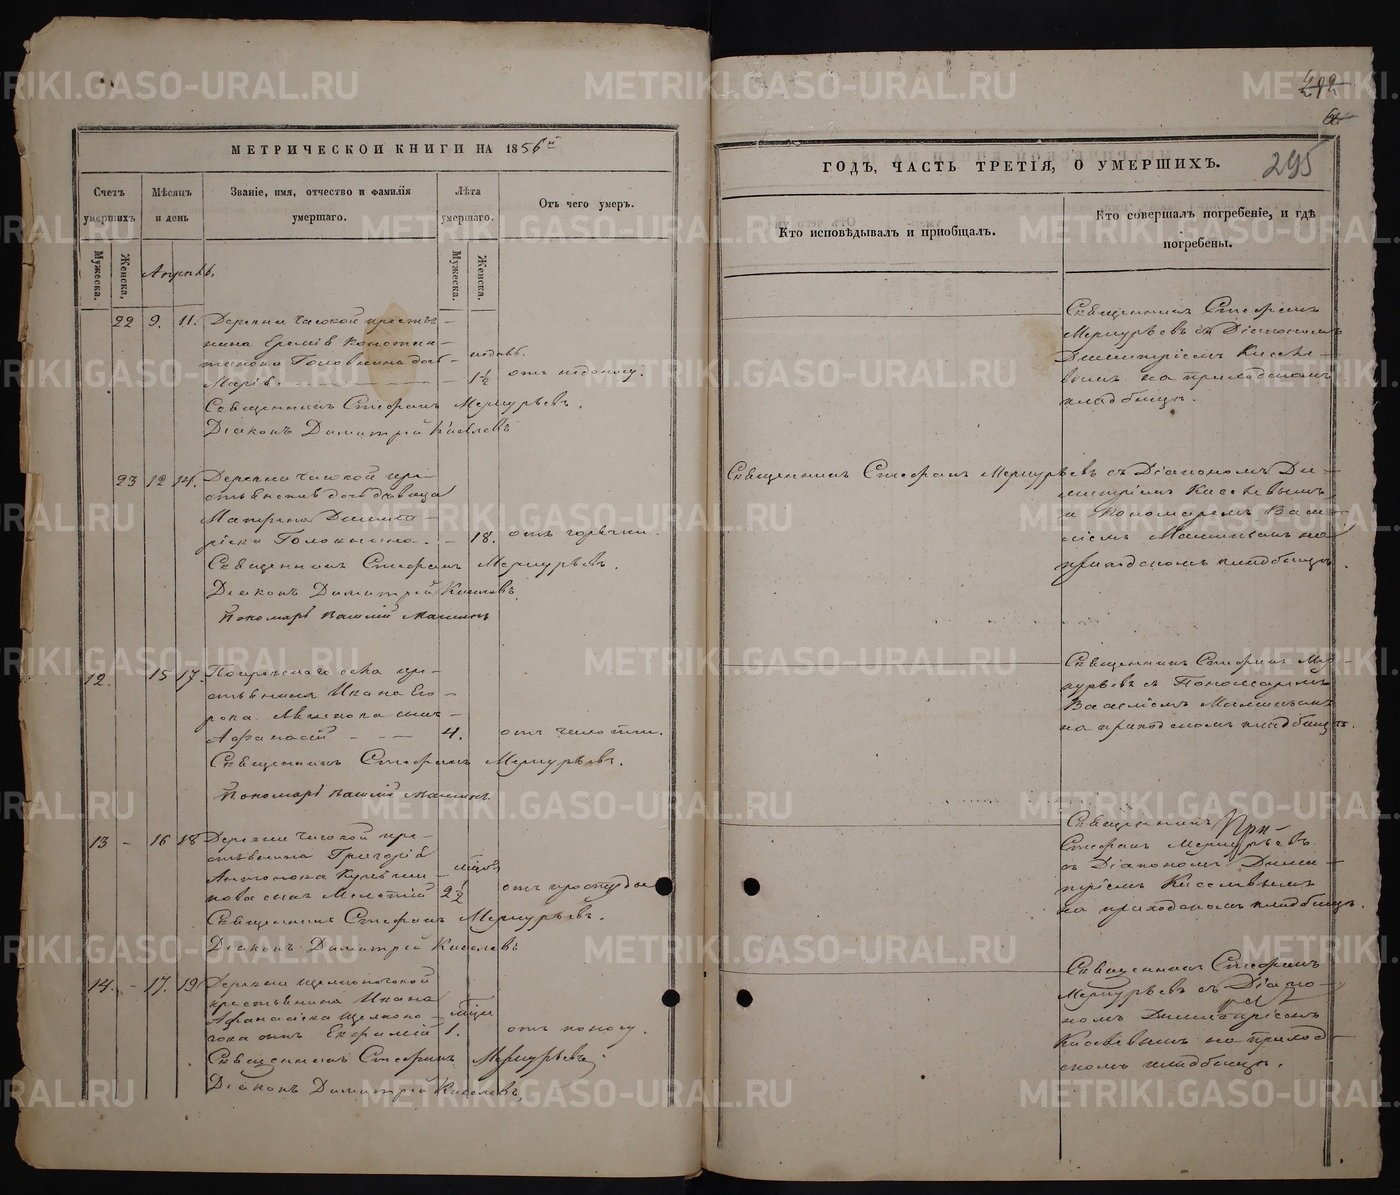 МЕТРИЧЕСКОЙ КНИГИ НА 1856й
Счетъ умершихъ
Мѣсяцъ и день
Званіе, имя, отчество и фамилія умершаго.
Лѣта умершаго.
Отъ чего умеръ.
Мужеска.
Женска,
Апрѣль.
Мужеска.
Женска.
22 9. 11. Деревни Часовой крестья-
нина Еремѣя Констан-
тинова Головнина дочь
Марія. 1½ отъ
Священникъ Стефанъ Меркурьевъ.
Діаконъ Димитрій Киселевъ
23 12 14. Деревни Часовой кре-
стьянская дочь дѣвица
Матрена Димит-
ріева 18. отъ горячки.
Священникъ Стефанъ Меркурьевъ.
Діаконъ Димитрій Киселевъ,
Пономарь Василій Маминъ
12. 15 17 Покровскаго села кре-
стьянина Ивана Его-
рова сынъ
Афанасій 4.
Священникъ Стефанъ Меркурьевъ.
Пономарь Василій Маминъ
13 16 18 Деревни Часовой кре-
стьянина Григорія
Антонова
сынъ Мелетій 2½ отъ простуды
Священникъ Стефанъ Меркурьевъ.
Діаконъ Димитрій Киселевъ
14. 17. 19 Деревни
крестьянина Ивана
сынъ Ефимій 1. отъ поносу.
Священникъ Стефанъ Меркурьевъ.
Діаконъ Димитрій Киселевъ,
212
295
ГОДЪ, ЧАСТЬ ТРЕТІЯ, О УМЕРШИХЪ.
Кто исповѣдывалъ и пріобщалъ.
Кто совершалъ погребеніе, и гдѣ погребены.
Священникъ Стефанъ
Меркурьевъ съ Діакономъ
Димитріемъ Киселе-
вымъ на приходскомъ
кладбищѣ.
Священникъ Стефанъ Меркурьевъ съ Діакономъ Ди-
митріемъ Киселевымъ
и Пономаремъ Васи-
ліемъ Маминымъ на
приходскомъ кладбищѣ.
Священникъ Стефанъ Мер-
курьевъ съ Пономаремъ
Василіемъ Маминымъ
на приходскомъ кладбищѣ.
Священникъ
Стефанъ Меркурьевъ
съ Діакономъ Дими-
тріемъ Киселевымъ
на приходскомъ кладбищѣ.
Священникъ Стефанъ
Меркурьевъ съ Діако-
номъ Димитріемъ
Киселевымъ на приход-
скомъ кладбищѣ.
METRIKI.GASO-URAL.RU